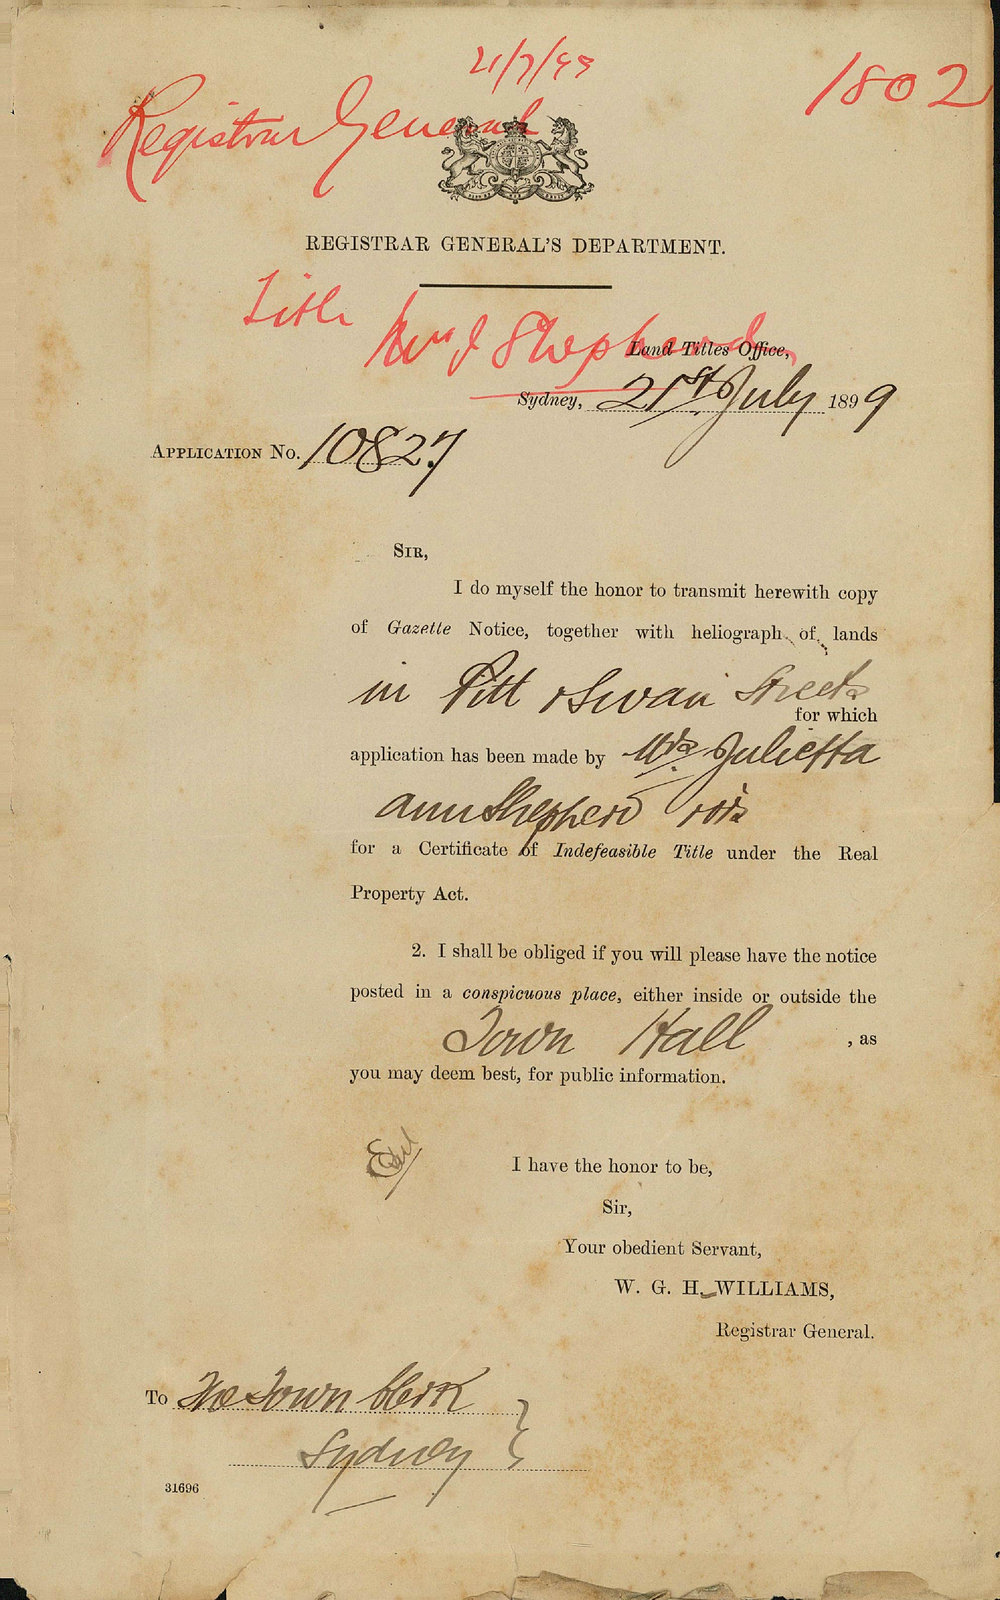 21/7/99
1802
Registrar General
REGISTRAR GENERAL'S DEPARTMENT.
Title
Mrs J Shepherd
Land Titles Office,
Sydney, 21st July 1899
APPLICATION No. 10827
SIR,
I do myself the honor to transmit herewith copy
of Gazette Notice, together with heliograph of lands
in Pitt & Swan Streets
for which
application has been made by Mrs Julietta
Ann Shepherd
for a Certificate of Indefeasible Title under the Real
Property Act.
2. I shall be obliged if you will please have the notice
posted in a conspicuous place, either inside or outside the
Town Hall , as
you may deem best, for public information.
I have the honor to be,
Sir,
Your obedient Servant,
W. G. H. WILLIAMS,
Registrar General.
To The Town Clerk
Sydney
31696